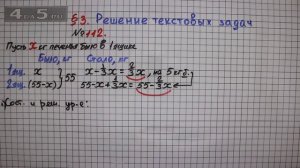 4 5
§3. Решение текстовых задач
№112.
Пусть x кг печенья было в 1 ящике
Было, кг Стало, кг
1 ящ. x } 55 x - 1/3x = 2/3x, на 5 кг б.
2 ящ. (55-x) 55-x+1/3x = 55-2/3x
Сост. и реш. ур-е: